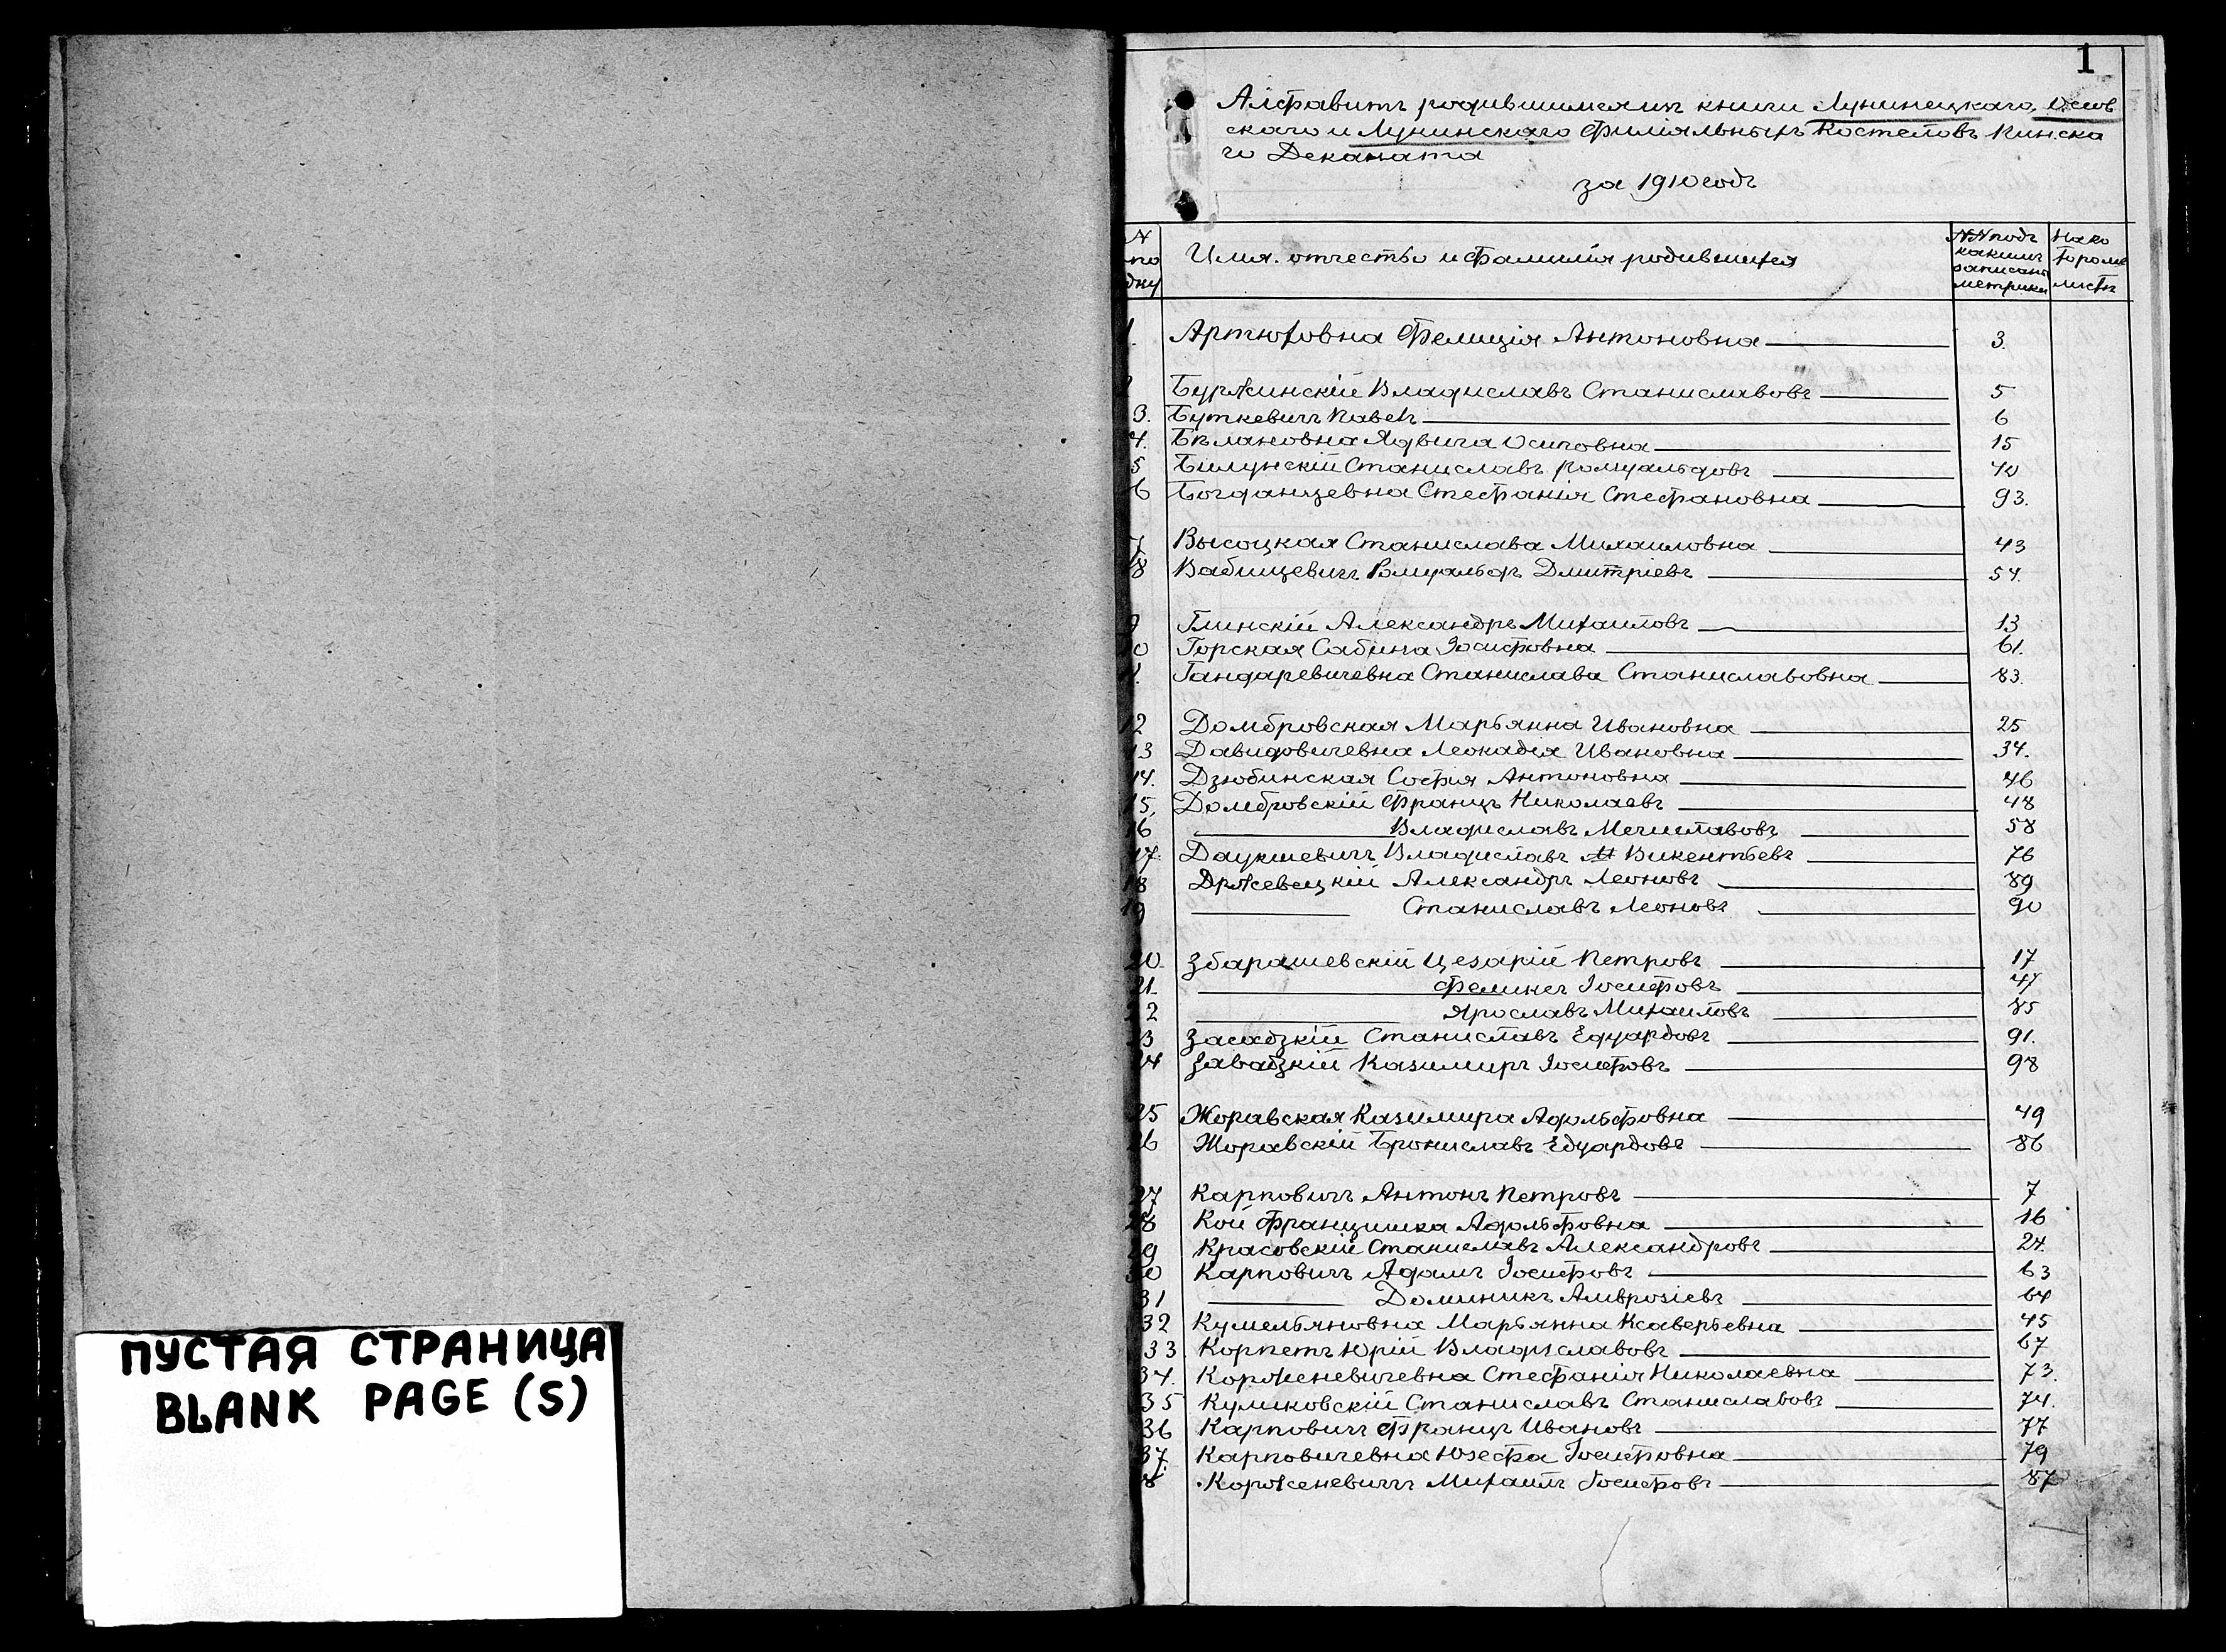 ПУСТАЯ СТРАНИЦА
BLANK PAGE (S)
1
Алфавитъ родившимся изъ книги Лунинецкаго, Осов
скаго и Лунинскаго филіяльныхъ Костеловъ Пинска
го Деканата
за 1910 годъ
N по дку Имя. отчество и фамилія родившихся NN подъ какимъ записаны метрики На ко торомъ листѣ
1. Артюховна Фелиція Антоновна 3.
2 Буржинскій Владиславъ Станиславовъ 5
3. Буткевичъ Павелъ 6
4. Ядвига Осиповна 15
5 Билунскій Станиславъ Ромуальдовъ 40
6 Богданцевна Стефанія Стефановна 93.
7 Высоцкая Станислава Михаиловна 43
8 Вабищевичъ Дмитріевъ 54.
9 Глинскій Александръ Михаиловъ 13
10 Горская Сабина Іосифовна 61.
11. Гандаревичевна Станислава Станиславовна 83.
12 Домбровская Марьянна Ивановна 25
13 Давидовичевна Леокадія Ивановна 34.
14. Дзюбинская Софія Антоновна 46
15. Домбровскій Францъ Николаевъ 48
16 Владиславъ Мечиславовъ 58
17. Даукшевичъ Владиславъ Викентьевъ 76
18 Држевецкій Александръ Леоновъ 89
19 Станиславъ Леоновъ 90
20. Збарашевскій Цезарій Петровъ 17
21. Феликсъ Іосифовъ 47
22 Ярославъ Михаиловъ 85
23 Засадзкій Станиславъ Едуардовъ 91.
24 Завадзкій Казимиръ Іосифовъ 98
25 Жоравская Казимира Адольфовна 49
26 Жоравскій Брониславъ Едуардовъ 86
27 Карповичъ Антонъ Петровъ 7
28 Кой Францишка Адольфовна 16
29 Красовскій Станиславъ Александровъ 24.
30 Карповичъ Адамъ Іосифовъ 63
31 Доминикъ Амвросіевъ 64
32 Кумельяновна Марьянна Ксаверьевна 45
33. Корпетъ Юрій Владиславовъ 67
34. Корженевичевна Стефанія Николаевна 73.
35 Куликовскій Станиславъ Станиславовъ 74.
36 Карповичъ Францъ Ивановъ 77
37. Карповичевна Юзефа Іосифовна 79
8 Корженевичъ Михаилъ Іосифовъ 87